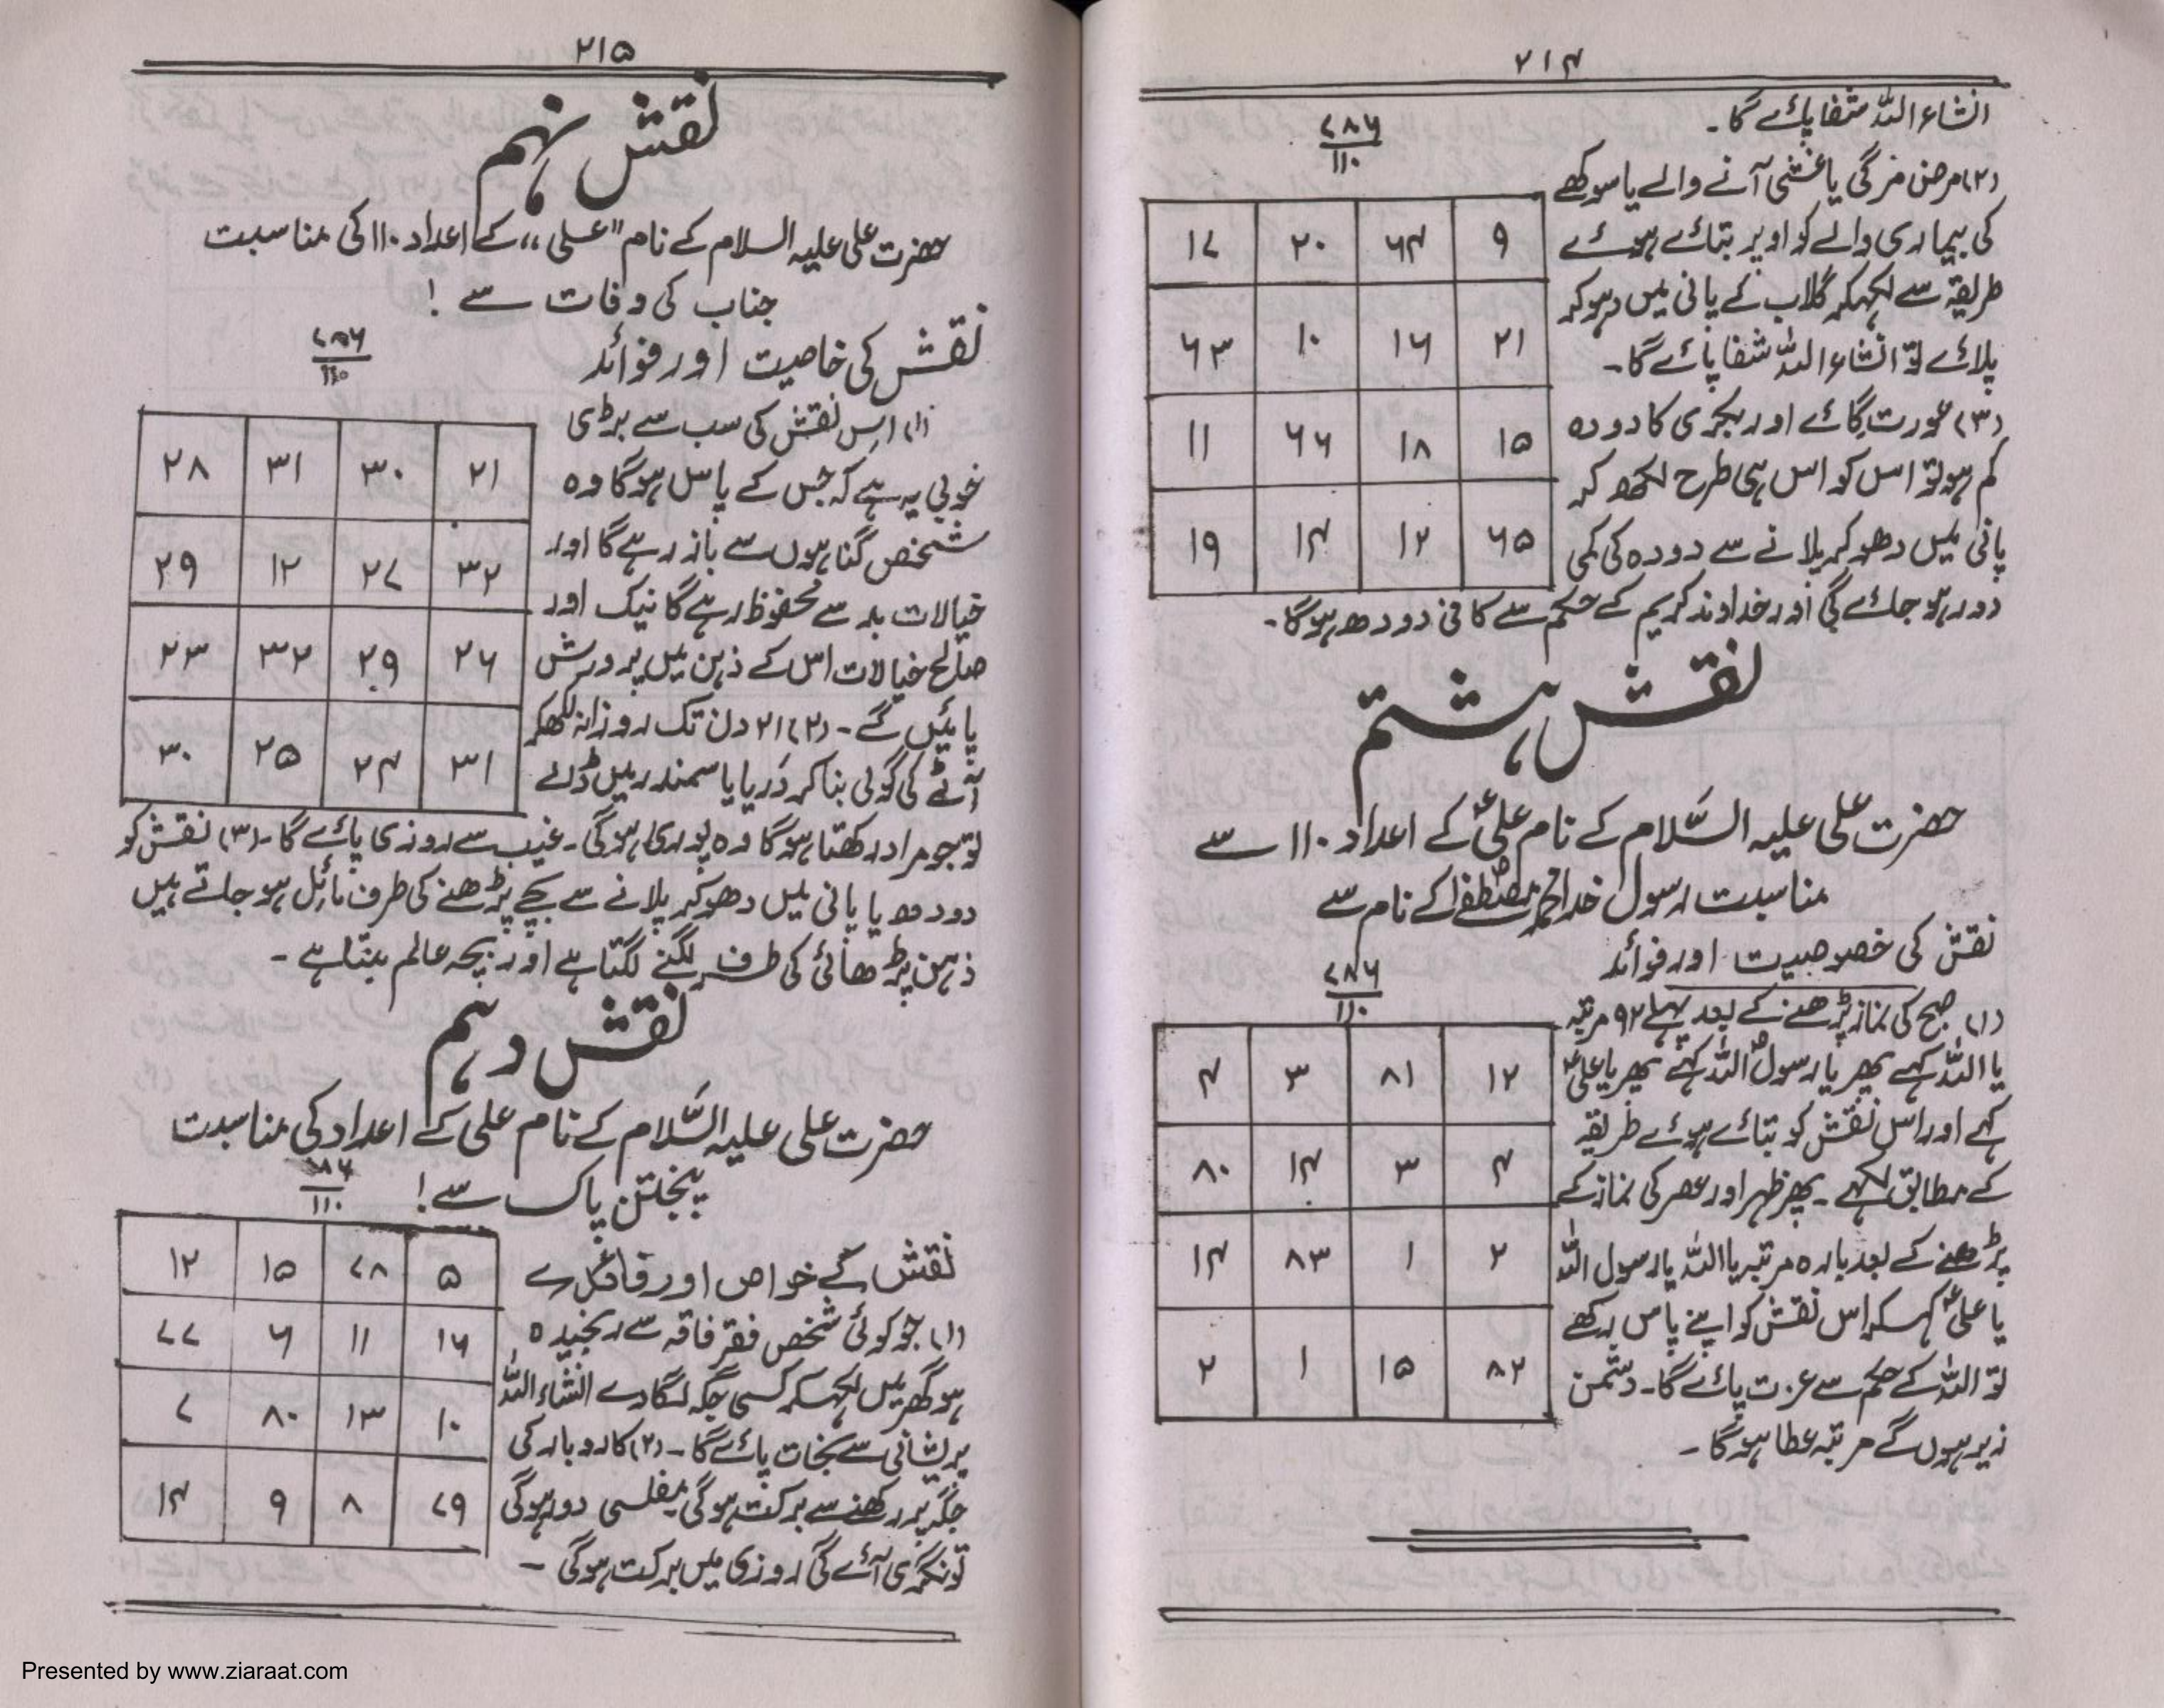 ۲۱۴
انشاء اللہ شفا پائے گا۔
۷۸۶
۱۱۰
(۲) مرض مرگی یا غشی آنے والے یا سوکھے
کی بیماری والے کو اوپر بتائے ہوئے
طریقہ سے لکھکر گلاب کے پانی میں دہوکر
پلائے تو انشاء اللہ شفا پائے گا۔
(۳) عورت گائے اور بکری کا دودہ
کم ہو تو اس کو اس ہی طرح لکھ کر
پانی میں دھوکر پلانے سے دودہ کی کمی
دور ہو جائے گی اور خداوند کریم کے حکم سے کافی دودھ ہوگا۔
۹ ۶۴ ۲۰ ۱۷
۲۱ ۱۶ ۱۰ ۶۳
۱۵ ۱۸ ۶۶ ۱۱
۶۵ ۱۲ ۱۴ ۱۹
نقش ہشتم
حضرت علی علیہ السَّلام کے نام علیؑ کے اعداد ۱۱۰ سے
مناسبت رسول خدا محمد مصطفےٰ کے نام سے
نقش کی خصوصیت اور فوائد
۷۸۶
۱۱۰
(۱) صبح کی نماز پڑھنے کے بعد پہلے ۹۲ مرتبہ
یا اللہ کہے پھر یا رسولؐ اللہ کہے پھر یا علیؑ
کہے اور اس نقش کو بتائے ہوئے طریقہ
کے مطابق لکھے۔ پھر ظہر اور عصر کی نماز کے
پڑھنے کے بعد بارہ مرتبہ یا اللہ یا رسول اللہ
یا علیؑ کہکر اس نقش کو اپنے پاس رکھے
تو اللہ کے حکم سے عزت پائے گا۔ دشمن
زیر ہوں گے مرتبہ عطا ہوگا۔
۱۲ ۸۱ ۳ ۴
۴ ۳ ۱۴ ۸۰
۲ ۱ ۸۳ ۱۴
۸۲ ۱۵ ۱ ۲
۲۱۵
نقش نہم
حضرت علی علیہ السلام کے نام "علی" کے اعداد ۱۱۰ کی مناسبت
جناب کی وفات سے!
نقش کی خاصیت اور فوائد
۷۸۶
۱۱۰
(۱) اس نقش کی سب سے بڑی
خوبی یہ ہے کہ جس کے پاس ہوگا وہ
شخص گناہوں سے باز رہے گا اور
خیالات بد سے محفوظ رہے گا نیک اور
صالح خیالات اس کے ذہن میں پرورش
پائیں گے۔ (۲) ۲۱ دن تک روزانہ لکھکر
آٹے کی گولی بنا کر دریا یا سمندر میں ڈالے
تو جو مراد رکھتا ہوگا وہ پوری ہوگی۔ غیب سے روزی پائے گا۔ (۳) نقش کو
دودھ یا پانی میں دھوکر پلانے سے بچے پڑھنے کی طرف مائل ہو جاتے ہیں
ذہن پڑھائی کی طرف لگنے لگتا ہے اور بچہ عالم بنتا ہے۔
۲۱ ۳۰ ۳۱ ۲۸
۳۲ ۲۷ ۱۲ ۲۹
۲۶ ۲۹ ۳۲ ۲۳
۳۱ ۲۴ ۲۵ ۳۰
نقش دہم
حضرت علی علیہ السَّلام کے نام علی کے اعداد کی مناسبت
پنجتن پاک سے!
۷۸۶
۱۱۰
نقش کے خواص اور فائدے
(۱) جو کوئی شخص فقر فاقہ سے رنجیدہ
ہو گھر میں لکھکر کسی جگہ لگادے انشاء اللہ
پریشانی سے نجات پائے گا۔ (۲) کاروبار کی
جگہ پر رکھنے سے برکت ہوگی مفلسی دور ہوگی
تونگری آئے گی روزی میں برکت ہوگی۔
۵ ۷۸ ۱۵ ۱۲
۱۶ ۱۱ ۶ ۷۷
۱۰ ۱۳ ۸۰ ۷
۷۹ ۸ ۹ ۱۴
Presented by www.ziaraat.com